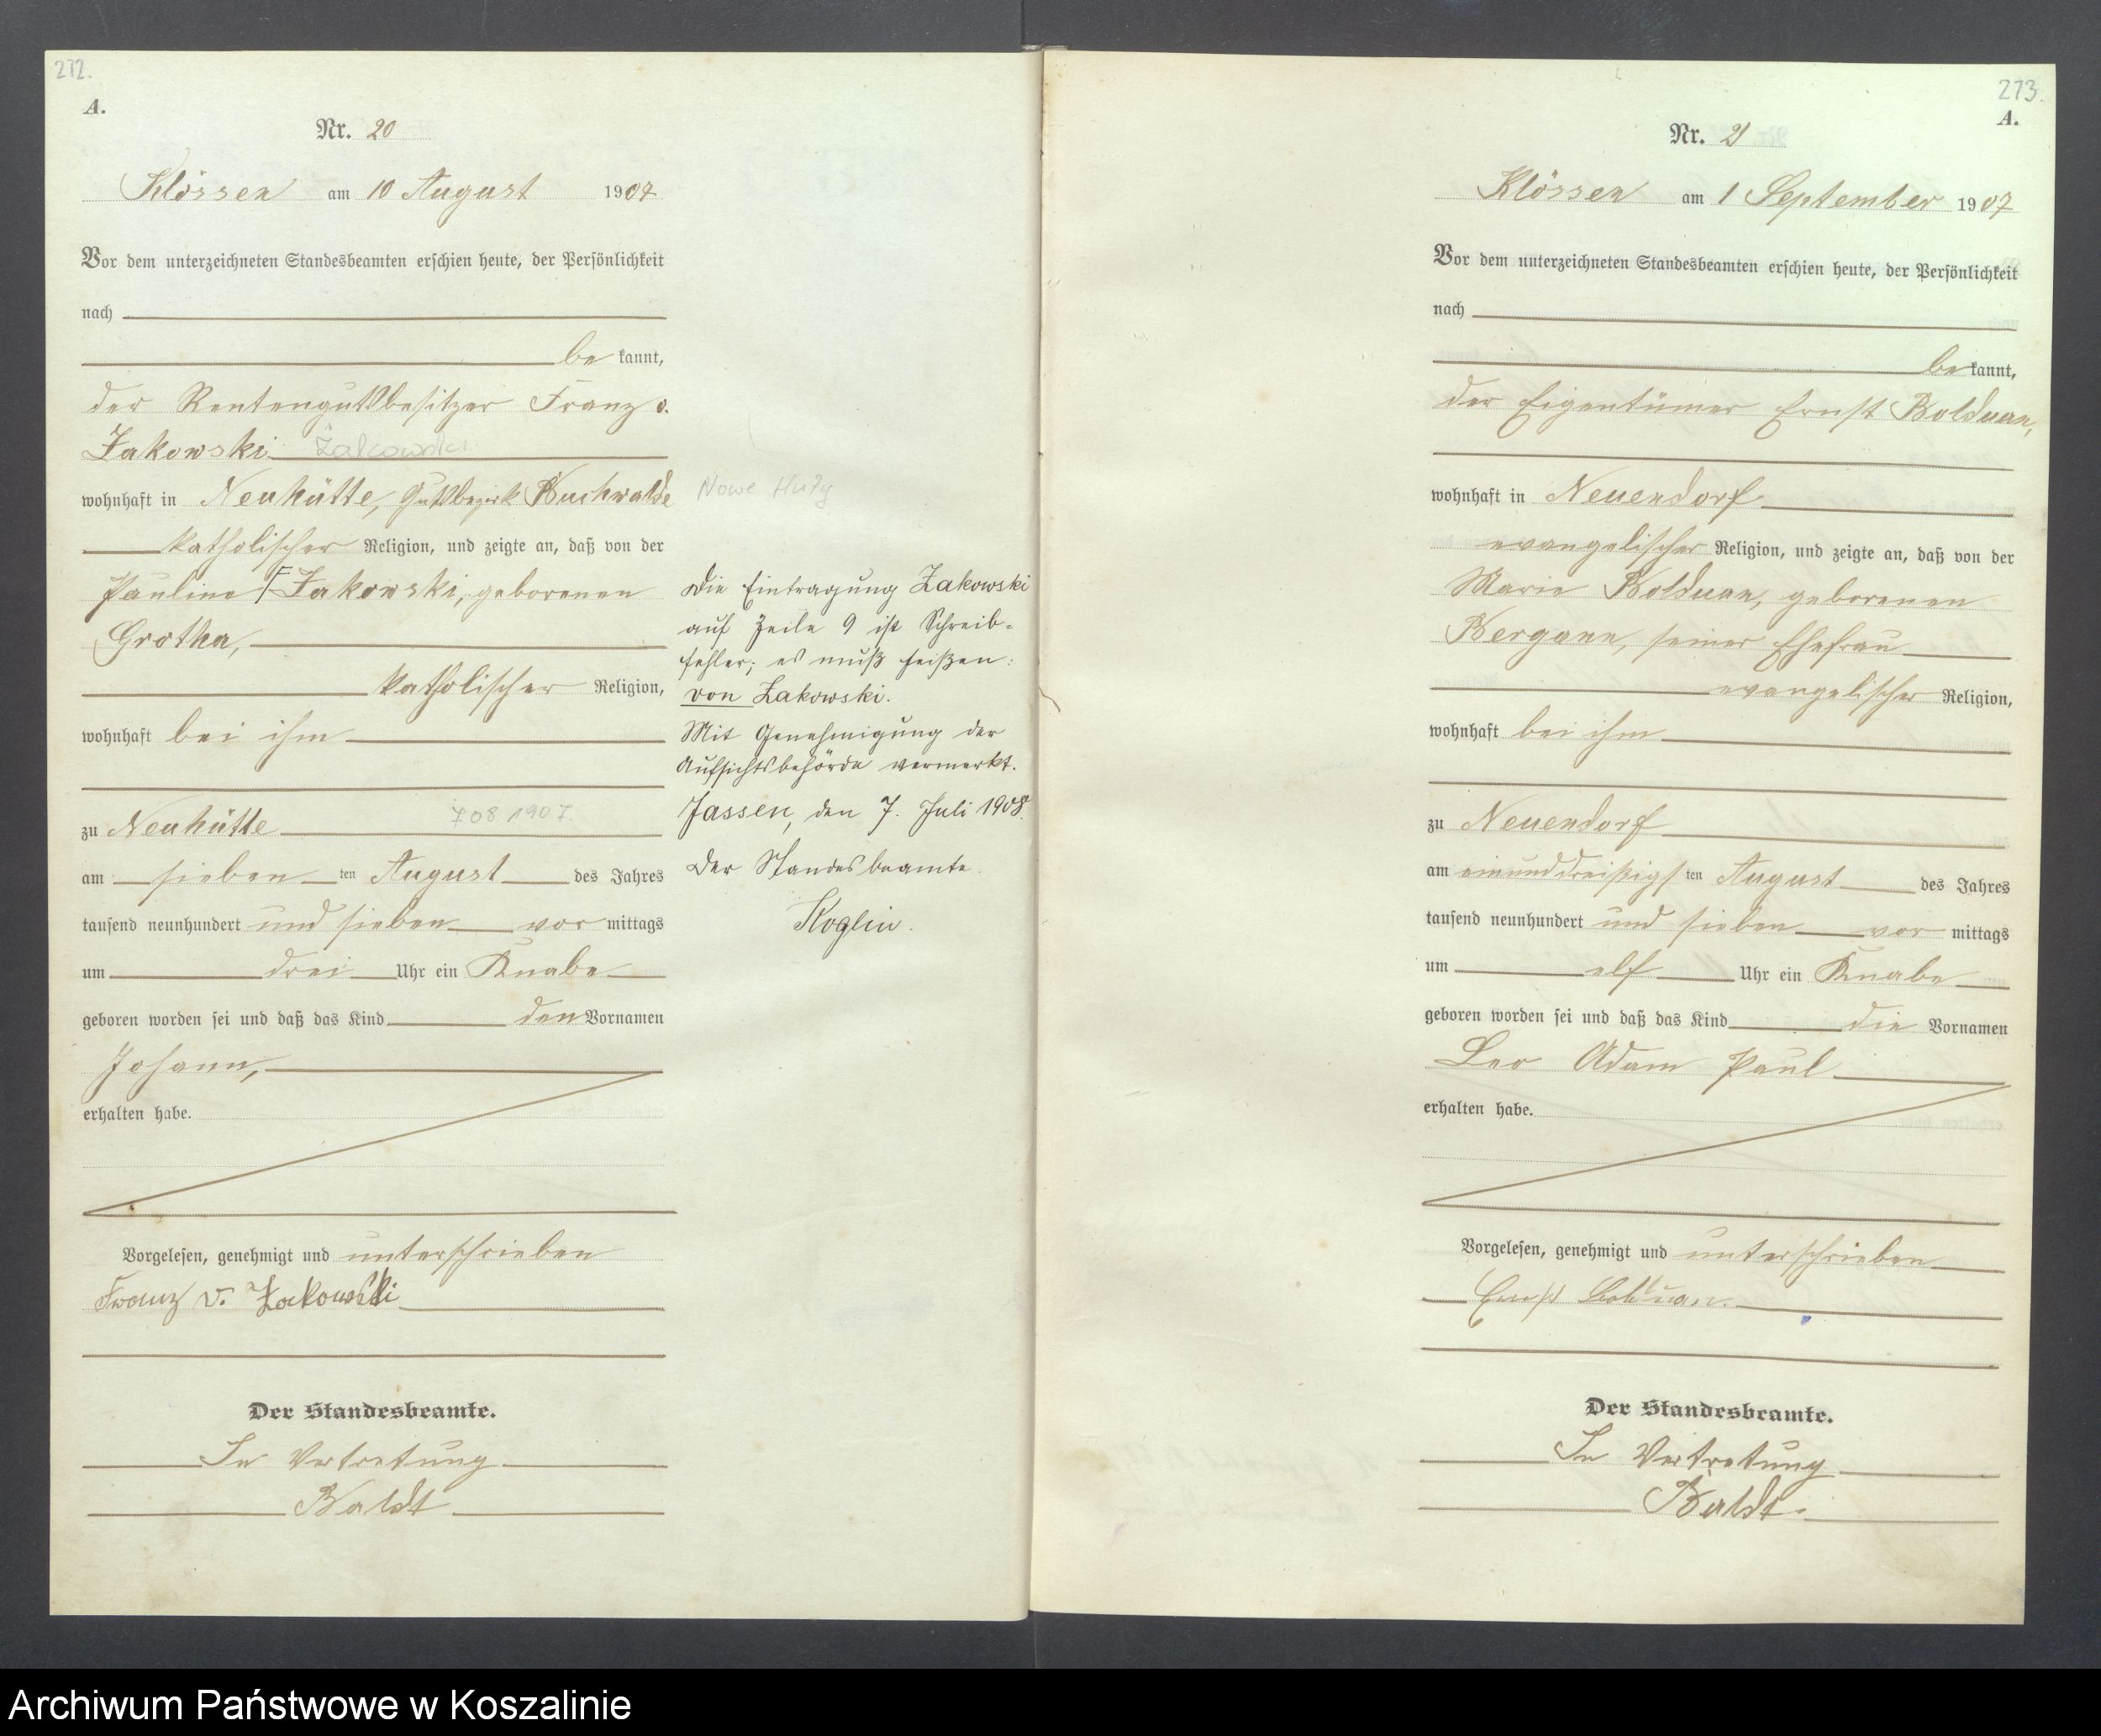 212.
A.
Nr. 20
Klössen am 10 August 1907
Vor dem unterzeichneten Standesbeamten erschien heute, der Persönlichkeit
nach
be kannt,
der Rentengutsbesitzer Franz v.
Zakowski
wohnhaft in Neuhütte, Gutsbezirk Buchwalde
katholischer Religion, und zeigte an, daß von der
Pauline Zakowski, geborenen
Grotha,
katholischer Religion,
wohnhaft bei ihm
zu Neuhütte 7 08 1907
am sieben ten August des Jahres
tausend neunhundert und sieben vor mittags
um drei Uhr ein Knabe
geboren worden sei und daß das Kind den Vornamen
Johann,
erhalten habe.
Vorgelesen, genehmigt und unterschrieben
Franz v. Zakowski
Der Standesbeamte.
In Vertretung
Baldt
Nowe Huty
Die Eintragung Zakowski
auf Zeile 9 ist Schreib-
fehler; es muß heißen:
von Zakowski.
Mit Genehmigung der
Aufsichtsbehörde vermerkt.
Jassen, den 7. Juli 1908.
Der Standesbeamte.
Koglin.
273.
A.
Nr. 21
Klössen am 1 September 1907
Vor dem unterzeichneten Standesbeamten erschien heute, der Persönlichkeit
nach
be kannt,
der Eigentümer Ernst Bolduan,
wohnhaft in Neuendorf
evangelischer Religion, und zeigte an, daß von der
Marie Bolduan, geborenen
Bergann, seiner Ehefrau
evangelischer Religion,
wohnhaft bei ihm
zu Neuendorf
am einunddreißigs ten August des Jahres
tausend neunhundert und sieben vor mittags
um elf Uhr ein Knabe
geboren worden sei und daß das Kind die Vornamen
Leo Adam Paul
erhalten habe.
Vorgelesen, genehmigt und unterschrieben
Ernst Bolduan.
Der Standesbeamte.
In Vertretung
Baldt.
Archiwum Państwowe w Koszalinie